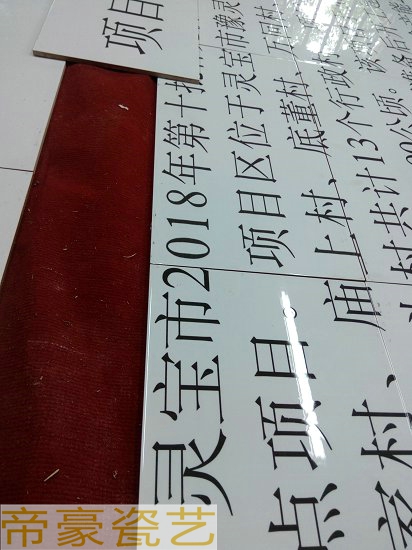 项目
灵宝市2018年第十批
点项目。项目区位于灵宝市豫灵
村、庙上村、底董村、万回村
村共计13个行政村 该
公顷。
帝豪瓷艺